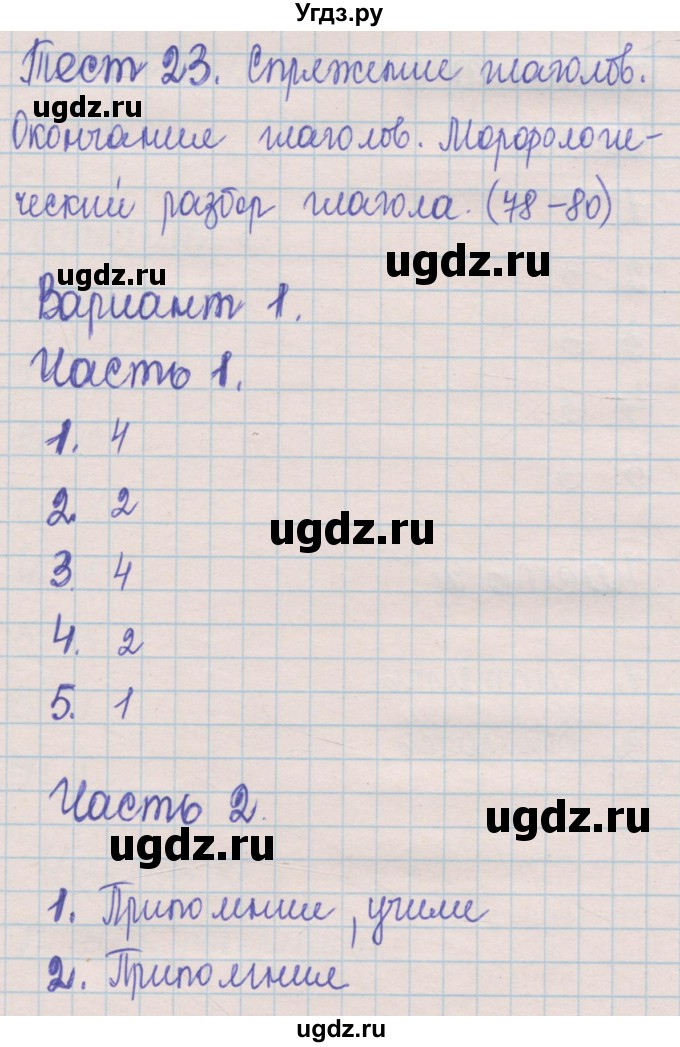 Угдз.ру
Тест 23. Спряжение глаголов.
ugdz.ru
Окончания глаголов. Морфологи-
ческий разбор глагола. (78-80)
ugdz.ru
ugdz.ru
Вариант 1.
Часть 1.
1. 4
2. 2
ugdz.ru
3. 4
4. 2
5. 1
Часть 2.
ugdz.ru
ugdz.ru
1. Припомнии, учили
2. Припомния
ugdz.ru